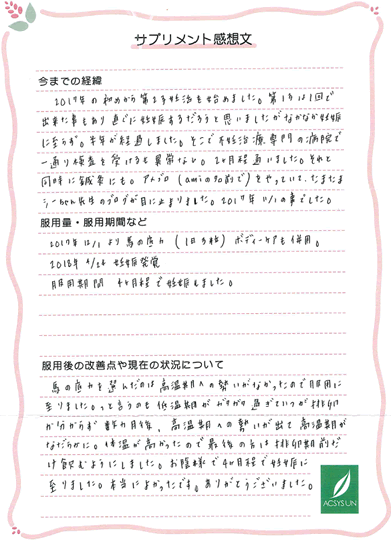 サプリメント感想文
今までの経緯
2017年の初めから第2子妊活を始めました。第1子は1回で
出来た事もあり直ぐに妊娠するだろうと思いましたがなかなか妊娠
に至らず。半年が経過しました。そこで不妊治療専門の病院で
通り検査を受けるも異常なし。2ヶ月程通いました。それと
同時に鍼灸にも。アメブロ(amiの知前で)をやっていて、たまたま
先生のブログが目に止まりました。2017年11/1の事でした。
服用量・服用期間など
2017年12/1より馬の底力(1日3粒)ボディーケアも併用。
2018年4/26妊娠発覚
服用期間 4ヶ月程で妊娠しました。
服用後の改善点や現在の状況について
馬の底力を選んだのは高温期への勢いがなかったので服用に
至りました。と言うのも低温期がガタガタ過ぎていつが排卵
か分からず数ヶ月後、高温期への勢いが出て高温期が
なだらかに。体温が高かったので最後の方は排卵期前だ
け飲むようにしました。お陰様で4ヶ月程で妊娠に
至りました。本当によかったです。ありがとうございました。
ACSYSUN